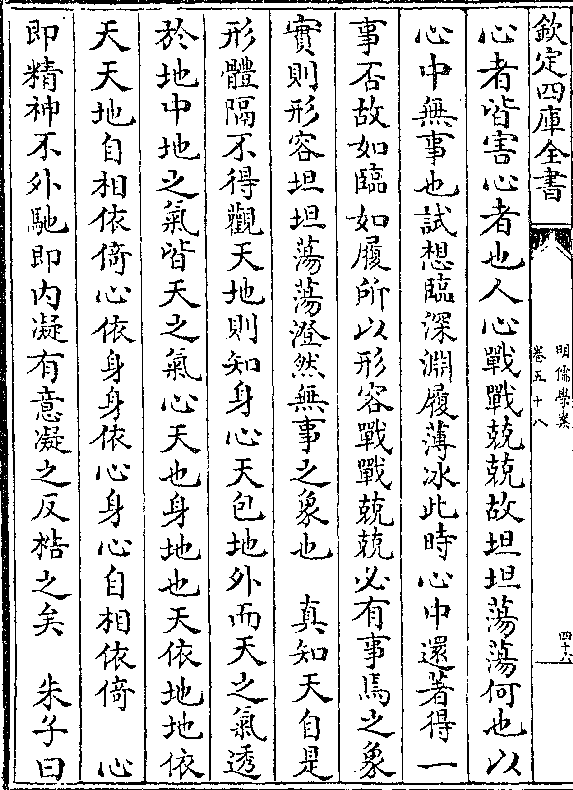 欽定四庫全書
明儒學案
卷五十八
四十六
心者皆害心者也人心戰戰兢兢故坦坦蕩蕩何也以
心中無事也試想臨深淵履薄冰此時心中還著得一
事否故如臨如履所以形容戰戰兢兢必有事焉之象
實則形容坦坦蕩蕩澄然無事之象也　真知天自是
形體隔不得觀天地則知身心天包地外而天之氣透
於地中地之氣皆天之氣心天也身地也天依地地依
天天地自相依倚心依身身依心身心自相依倚　心
即精神不外馳即内凝有意凝之反梏之矣　朱子曰